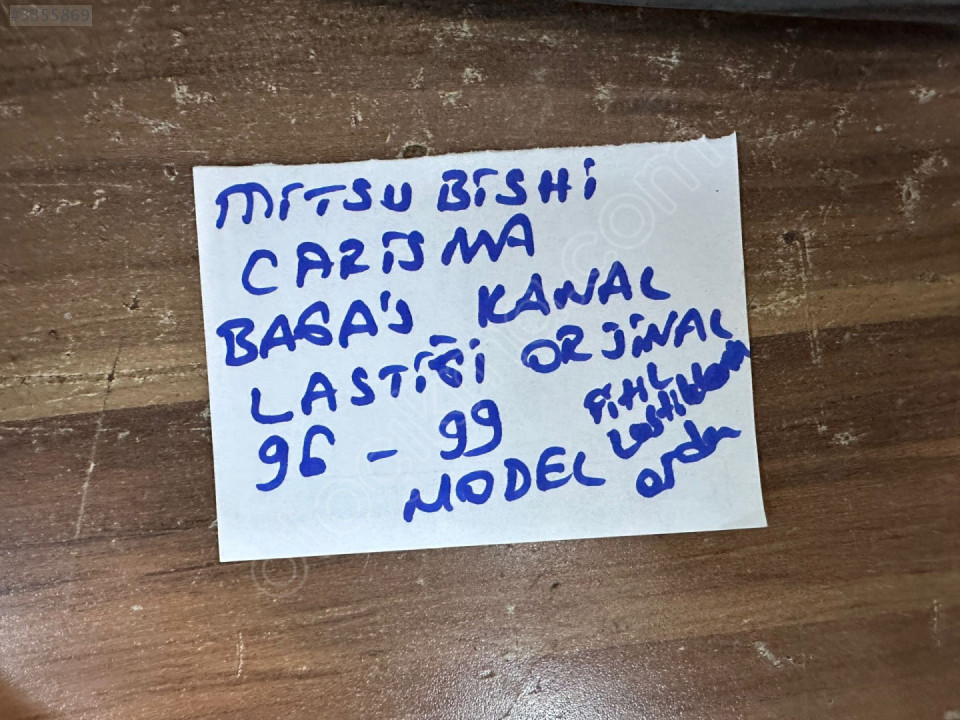 #3855869
MİTSUBİSHİ
CARİSMA
BAGAJ KANAL
LASTİĞİ ORJİNAL
96 - 99
MODEL
FİTİL
orda